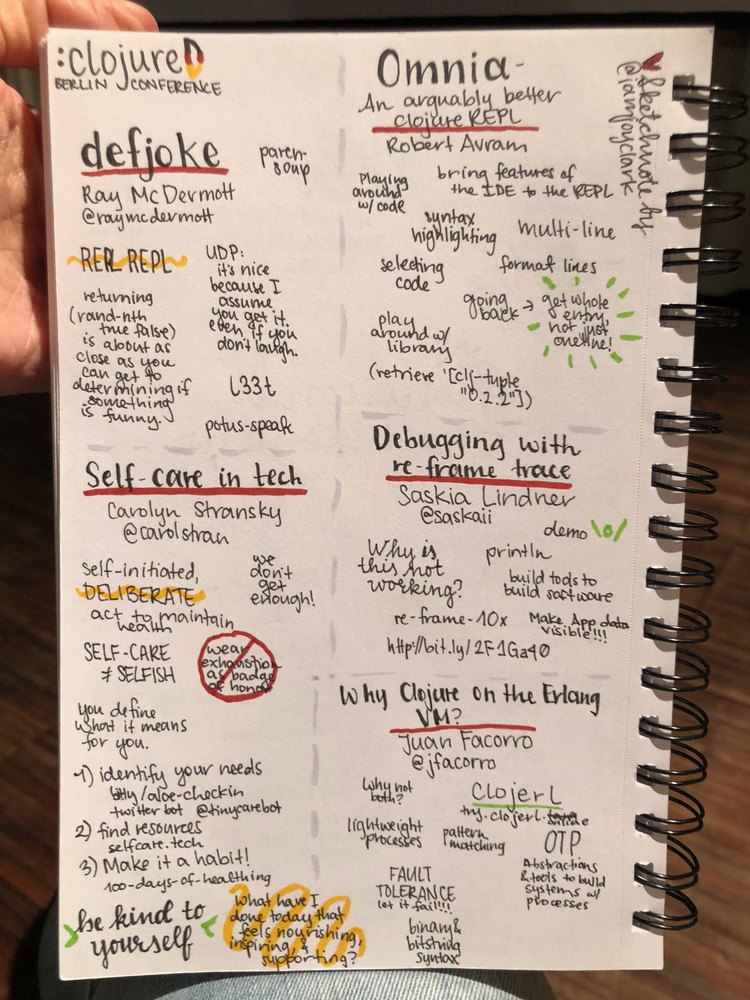 :clojureD
BERLIN CONFERENCE
defjoke
Ray McDermott
@raymcdermott
paren-
soup
REPL REPL
returning
(rand-nth
true false)
is about as
close as you
can get to
determining if
something
is funny.
UDP:
it's nice
because I
assume
you get it.
even if you
don't laugh.
l33t
potus-speak
Self-care in tech
Carolyn Stransky
@carolstran
self-initiated,
DELIBERATE
act to maintain
health
we
don't
get
enough!
SELF-CARE
≠ SELFISH
wear
exhaustion
as badge
of honor
you define
what it means
for you.
1) identify your needs
bit.ly/aloe-checkin
twitter bot @tinycarebot
2) find resources
selfcare.tech
3) Make it a habit!
100-days-of-healthing
be kind to
yourself
what have I
done today that
feels nourishing,
inspiring &
supporting?
Omnia-
An arguably better
clojure REPL
Robert Avram
Sketchnote by
@iamjoyclark
Playing
around
w/ code
bring features of
the IDE to the REPL
syntax
highlighting
multi-line
selecting
code
format lines
going
back →
get whole
entry,
not just
one line!
play
around w/
library
(retrieve '[clj-tuple
"0.2.2"])
Debugging with
re-frame trace
Saskia Lindner
@saskaii
demo \o/
Why is
this not
working?
println
build tools to
build software
re-frame-10x
Make App data
visible!!!
http://bit.ly/2F1Ga40
Why Clojure on the Erlang
VM?
Juan Facorro
@jfacorro
Why not
both?
ClojerL
try.clojerl.
lightweight
processes
pattern
matching
OTP
Abstractions
& tools to build
systems w/
processes
FAULT
TOLERANCE
let it fail!!!
binary &
bitstring
syntax